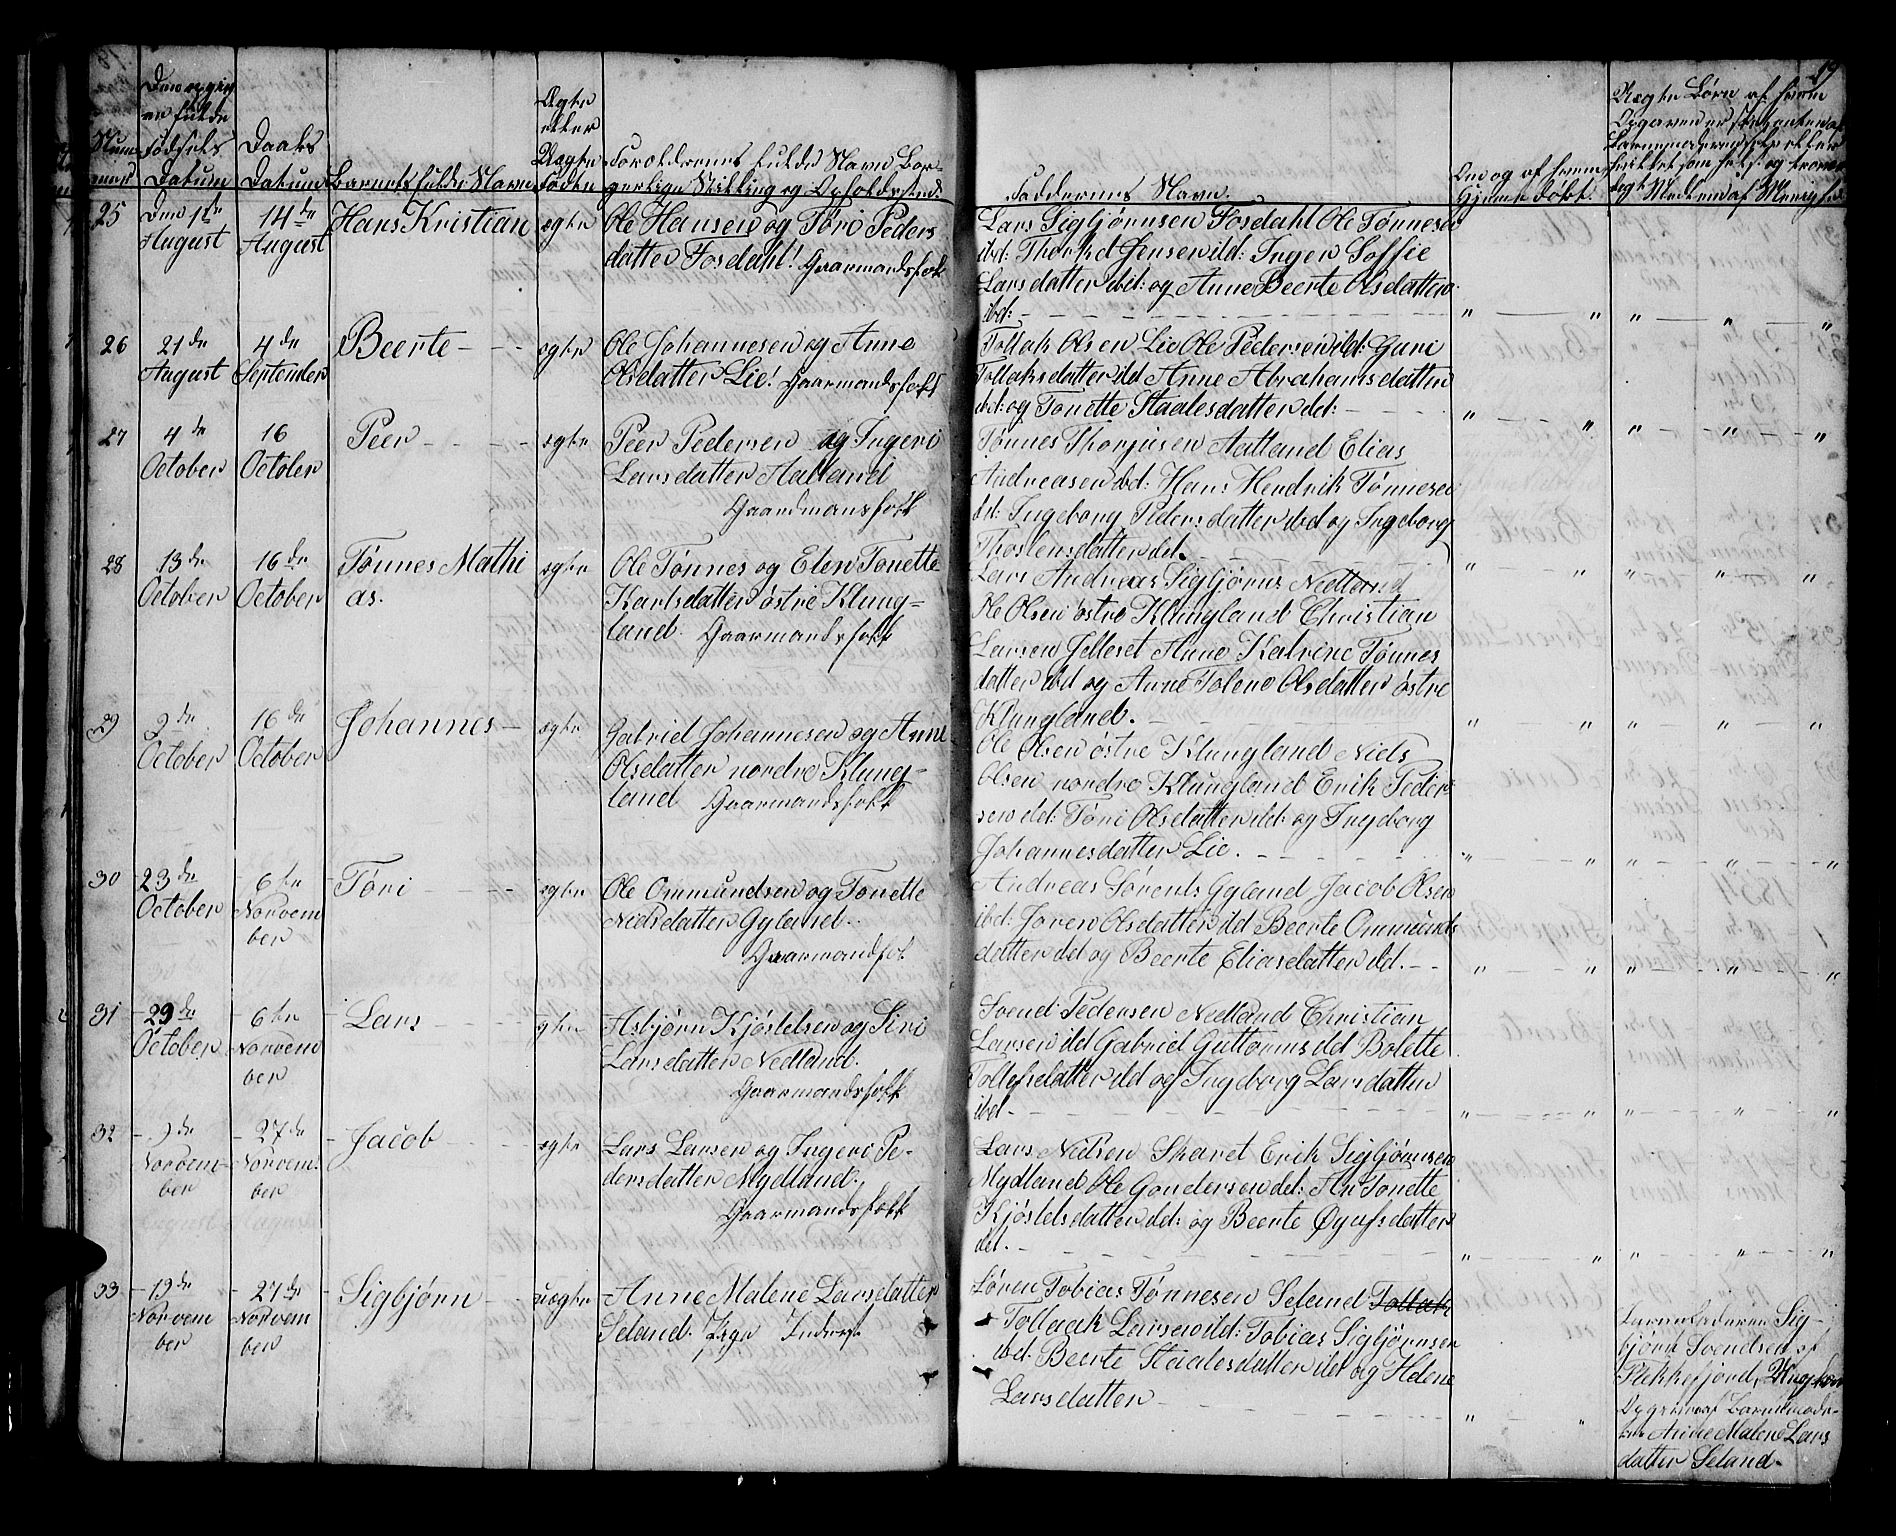 19
Num-
mer
Den opgiv
ne fulde
Fødsels
Datum
Daabs
Datum
Barnets fulde Navn
Ægte
eller
Uægte
fødte
Foreldrenes fulde Navn Bor-
gerlige Stilling og Opholdssted.
Faddernes Navn.
Om og af hvem
Hjemme døbt.
Uægte Børn af hvem
25
Den 1te
August
14de
August
Hans Kristian
ægte
Ole Hansen og Tøri Peders
datter Fosdahl! Gaarmandsfolk
Lars Sigbjørnsen Fosdahl Ole Tønnesen
ibd: Thorkel Jensen ibd: Inger Soffie
Larsdatter ibd: og Anne Beerte Olsdatter
ibd:
26
21de
August
4de
September
Beerte
ægte
Ole Johannesen og Anne
Olsdatter Lie! Gaarmandsfolk
Tollak Olsen Lie Ole Pedersen ibd: Guri
Tollaksdatter ibd Anne Abrahamsdatter
ibd: og Tonette Staalesdatter ibd:
27
4de
October
16
October
Peer
ægte
Peer Pedersen og Ingeri
Larsdatter Aatland
Gaardmansfolk
Tønnes Thorjusen Aatland Elias
Andreasen ibd: Hans Hendrik Tønnesen
ibd: Ingeborg Pedersdatter ibd og Ingeborg
Thoslensdatter ibd.
28
13de
October
16de
October
Tønnes Mathi
as.
ægte
Ole Tønnes og Elen Tonette
Karlsdatter østre Klung=
land. Gaarmandsfolk
Lars Andreas Sigbjørns Nedland
Ole Olsen østre Klungland Christian
Larsen Jelleset Anne Katrine Tønnes
datter ibd og Anne Tolene Olsdatter østre
Klungland.
29
2de
October
16de
October
Johannes
ægte
Gabriel Johannesen og Anne
Olsdatter nordre Klung-
land Gaarmandsfolk
Ole Olsen østre Klungland Niels
Olsen nordre Klungland Erik Peder-
sen ibd: Tøri Olsdatter ibd: og Ingeborg
Johannesdatter Lie.
30
23de
October
6te
Norvem
ber
Tøri
ægte
Ole Ommundsen og Tonette
Nielsdatter Gyland.
Gaarmandsfol
Andreas Sørents Gyland Jacob Olsen
ibd: Joren Olsdatter ibd Beerte Ommunds
datter ibd og Beerte Eliasdatter ibd.
31
29de
October
6te
Norvem
ber
Lars
gte
Asbjørn Kjøstelsen og Siri
Larsdatter Nedland.
Gaarmandsfolk
Svend Pedersen Nedland Christian
Larsen ibd Gabriel Guttorms ibd Bolette
Tollefsdatter ibd og Ingeborg Larsdatter
ibd
32
9de
Norvem-
ber
27de
Norvem-
ber
Jacob
ægte
Lars Larsen og Ingeri Pe-
dersdatter Mydland.
Gaarmandsfolk
Lars Nielsen Skaret Erik Sigbjørnsen
Mydland Ole Gondersen ibd: An Tonette
Kjøstelsdatter ibd: og Beerte Øyufsdatter
ibd.
33
19de
Norvem
ber
27de
Norvem
ber
Sigbjørn
uægte
Anne Malene Larsdatter
Seland.
Søren Tobias Tønnesen Seland Tollak
Tollaak Larsen ibd: Tobias Sigbjørnsen
ibd. Beerte Staalesdatter ibd og Helene
Larsdatter
Barnefaderen Sig-
bjørn Svendsen af
Flekkefjord, Ungkarl
Opgivet af Barnemode-
ren Anne Malene Lars
datter Seland.